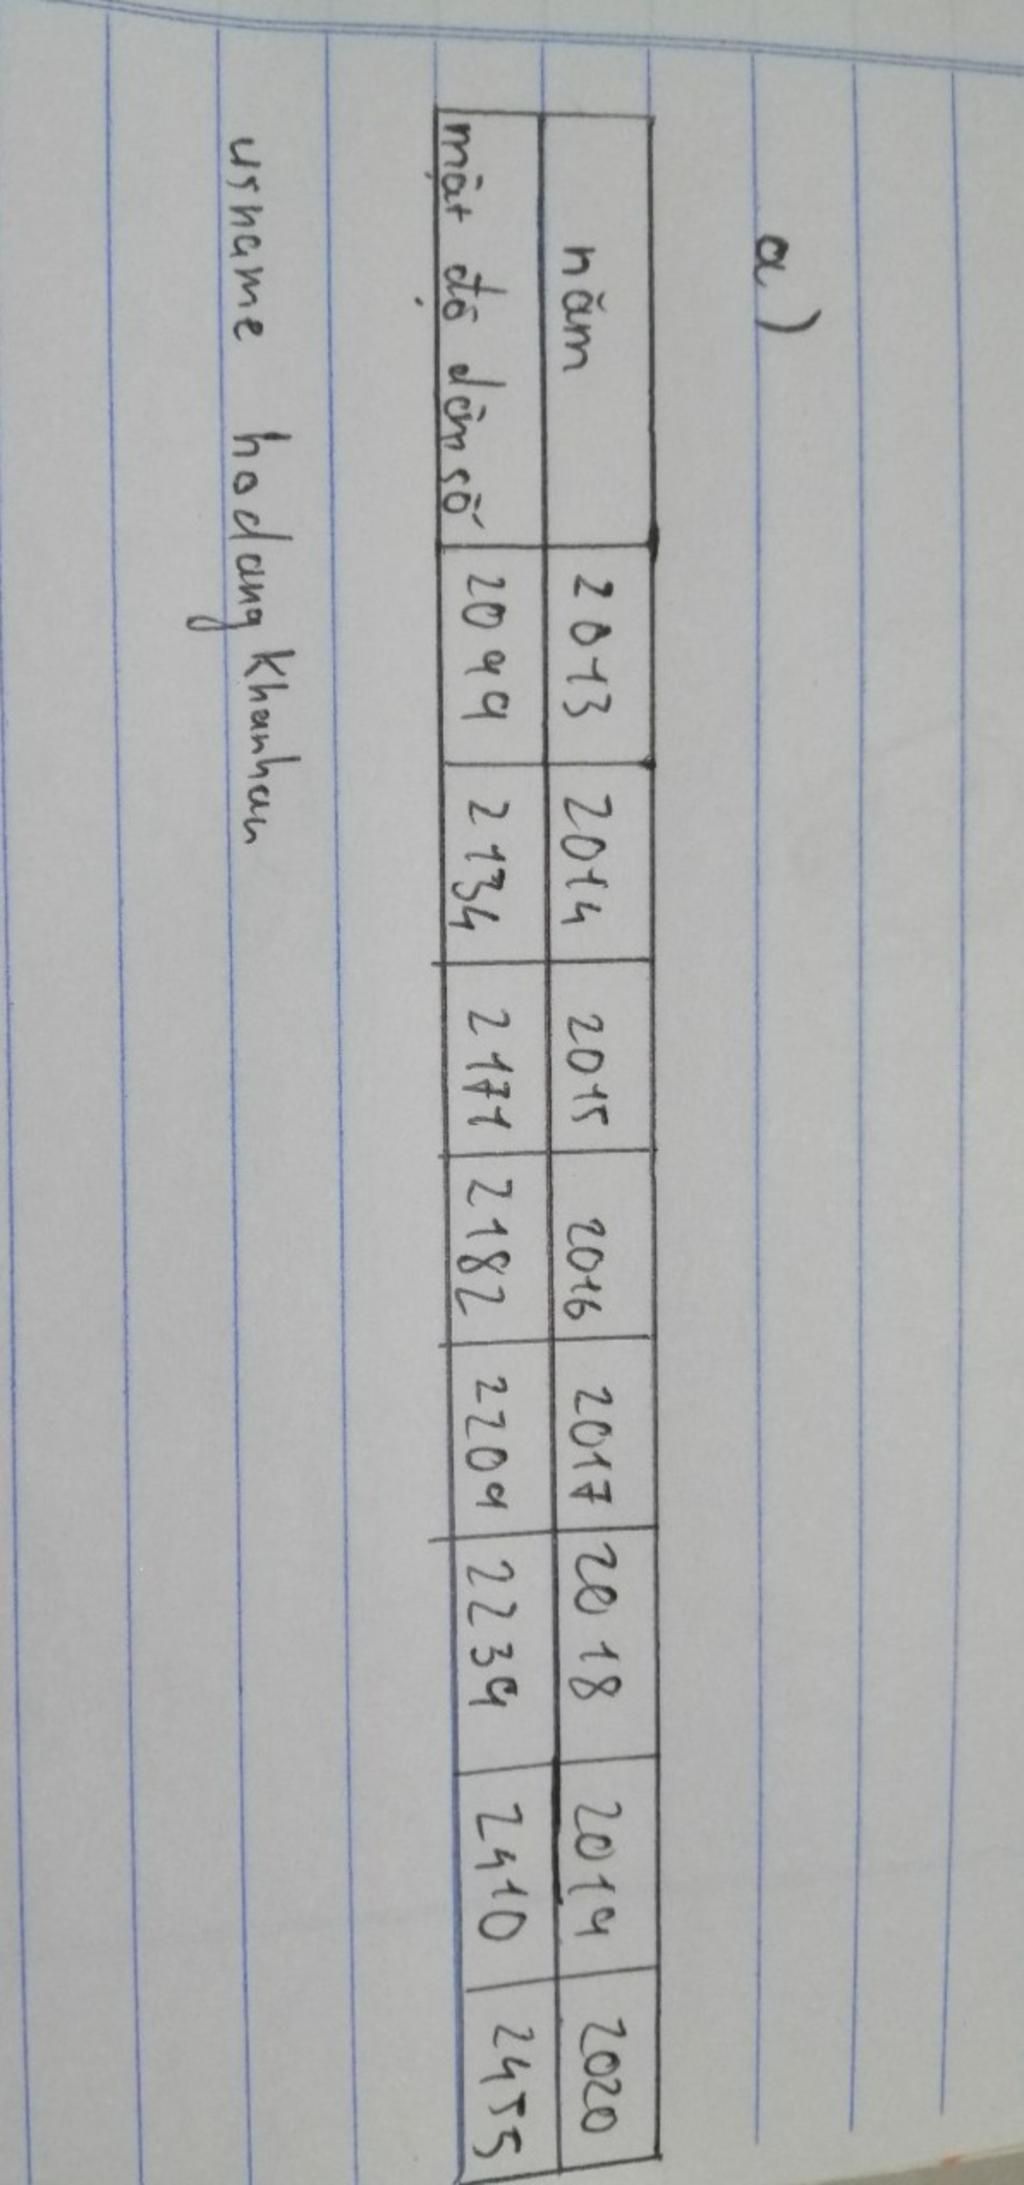 a)
năm 2013 2014 2015 2016 2017 2018 2019 2020
mật độ dân số 2099 2134 2171 2182 2209 2239 2410 2455
usname hodangkhanhau